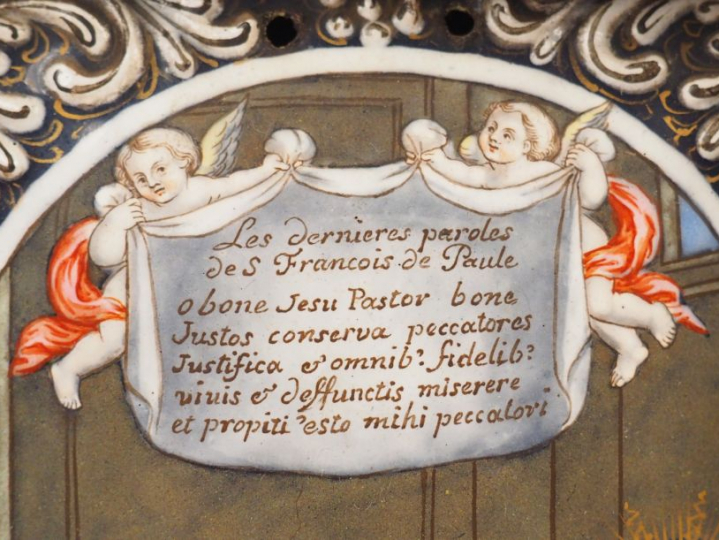 Les dernieres paroles
de S Francois de Paule
o bone Jesu Pastor bone
Justos conserva peccatores
Justifica & omnib? fidelib?
viuis & deffunctis miserere
et propiti? esto mihi peccatori